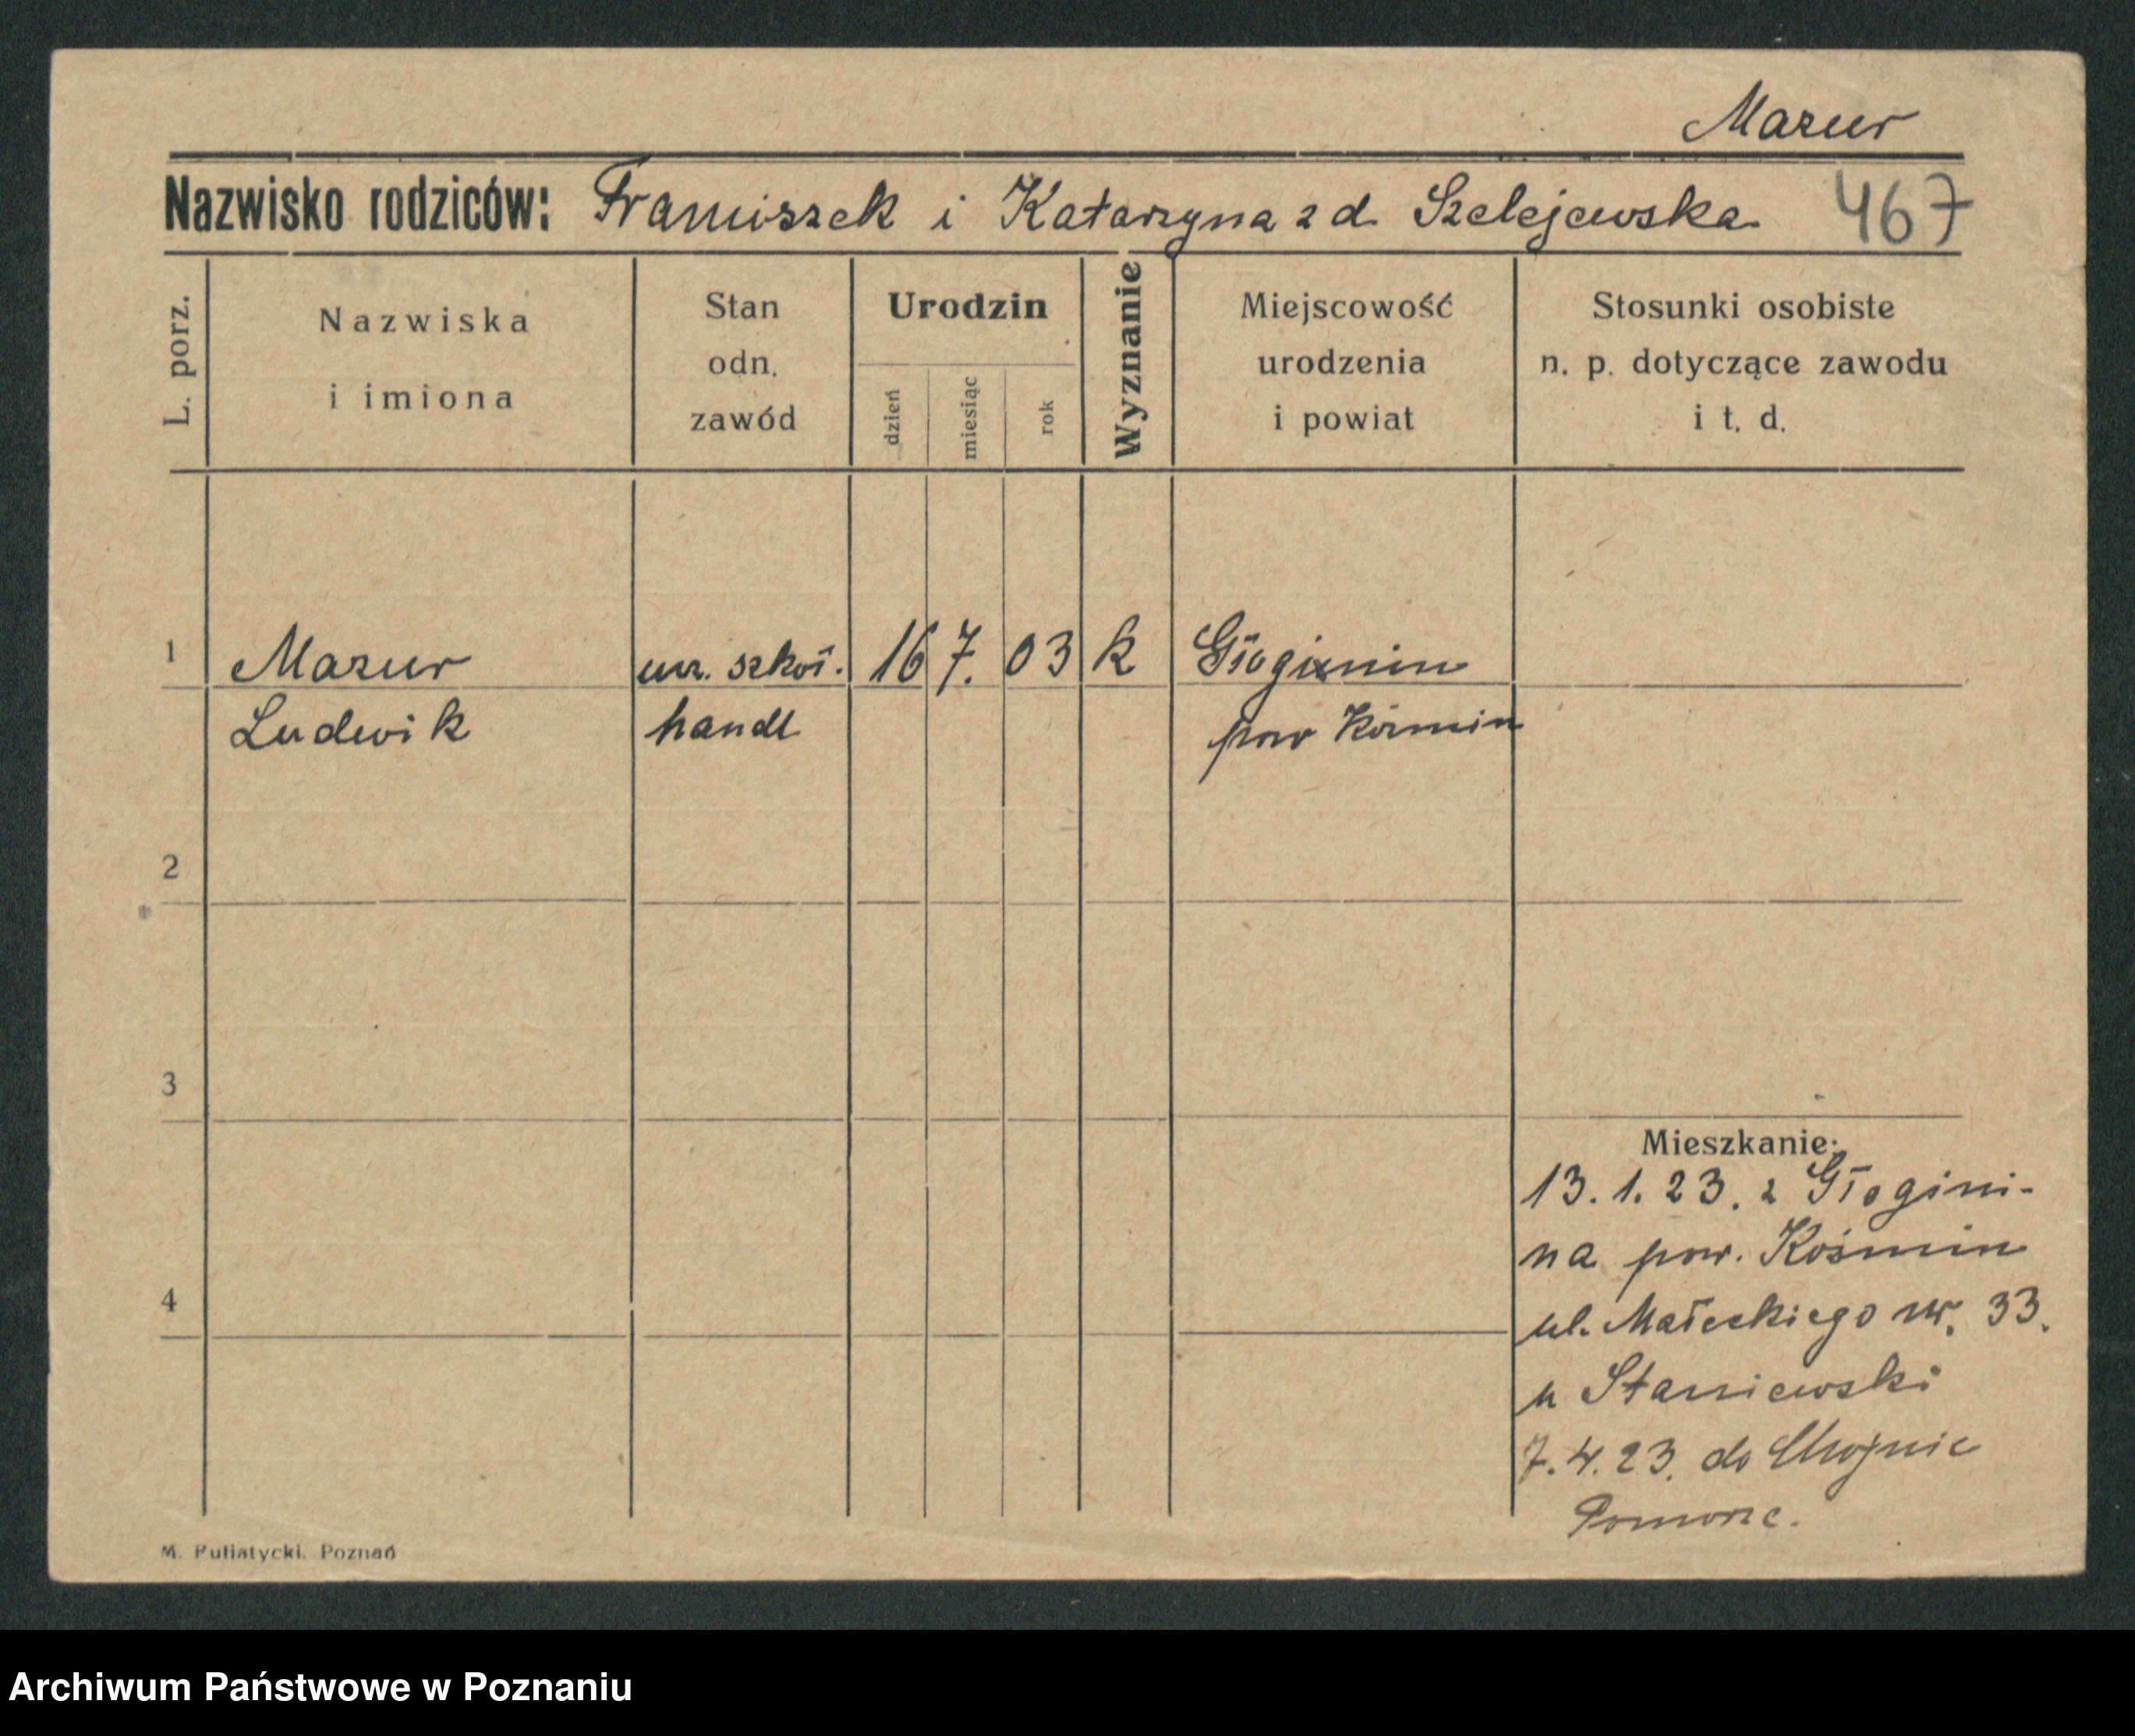 Mazur
Nazwisko rodziców: Franciszek i Katarzyna z d. Szelejewska
467
L. porz.
Nazwiska
i imiona
Stan
odn.
zawód
Urodzin
dzień
miesiąc
rok
Wyznanie
Miejscowość
urodzenia
i powiat
Stosunki osobiste
n. p. dotyczące zawodu
i t. d.
1 Mazur ucz. szkoł. 16 7. 03 k Głoginin
Ludwik handl pow Koźmin
2
3
4
Mieszkanie:
13.1.23. z Głogini-
na pow. Koźmin
ul. Małeckiego nr. 33.
u Staniewski
7.4.23. do Chojnic
Pomorze.
M. Putiatycki. Poznań
Archiwum Państwowe w Poznaniu